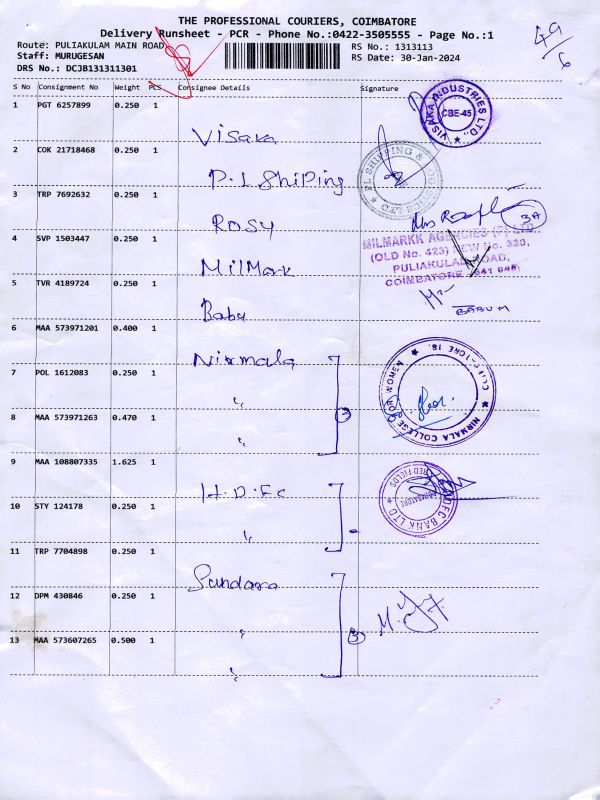 THE PROFESSIONAL COURIERS, COIMBATORE
Delivery Runsheet - PCR - Phone No.:0422-3505555 - Page No.:1
Route: PULIAKULAM MAIN ROAD
RS No.: 1313113
49/6
Staff: MURUGESAN
RS Date: 30-Jan-2024
DRS No.: DCJB131311301
S No Consignment No Weight PCS Consignee Details Signature
1 PGT 6257899 0.250 1
Visaka
VISAKA INDUSTRIES LTD.
CBE-45
2 COK 21718468 0.250 1
P.L ShiPing
PL SHIPPING & LOGISTICS LTD
3 TRP 7692632 0.250 1
ROSY
3A
4 SVP 1503447 0.250 1
MilMark
MILMARKK AGENCIES (P) LTD
(OLD No. 423) NEW No. 330,
PULIAKULAM ROAD,
COIMBATORE - 641 045
5 TVR 4189724 0.250 1
Babu
BABU M
6 MAA 573971201 0.400 1
Nirmala
7 POL 1612083 0.250 1
"
3
NIRMALA COLLEGE FOR WOMEN
COIMBATORE 18.
8 MAA 573971263 0.470 1
"
9 MAA 108807335 1.625 1
H.D.F.C
HDFC BANK LTD
RED FIELDS
COIMBATORE
10 STY 124178 0.250 1
"
11 TRP 7704898 0.250 1
Sundara
12 DPM 430846 0.250 1
"
3
13 MAA 573607265 0.500 1
"